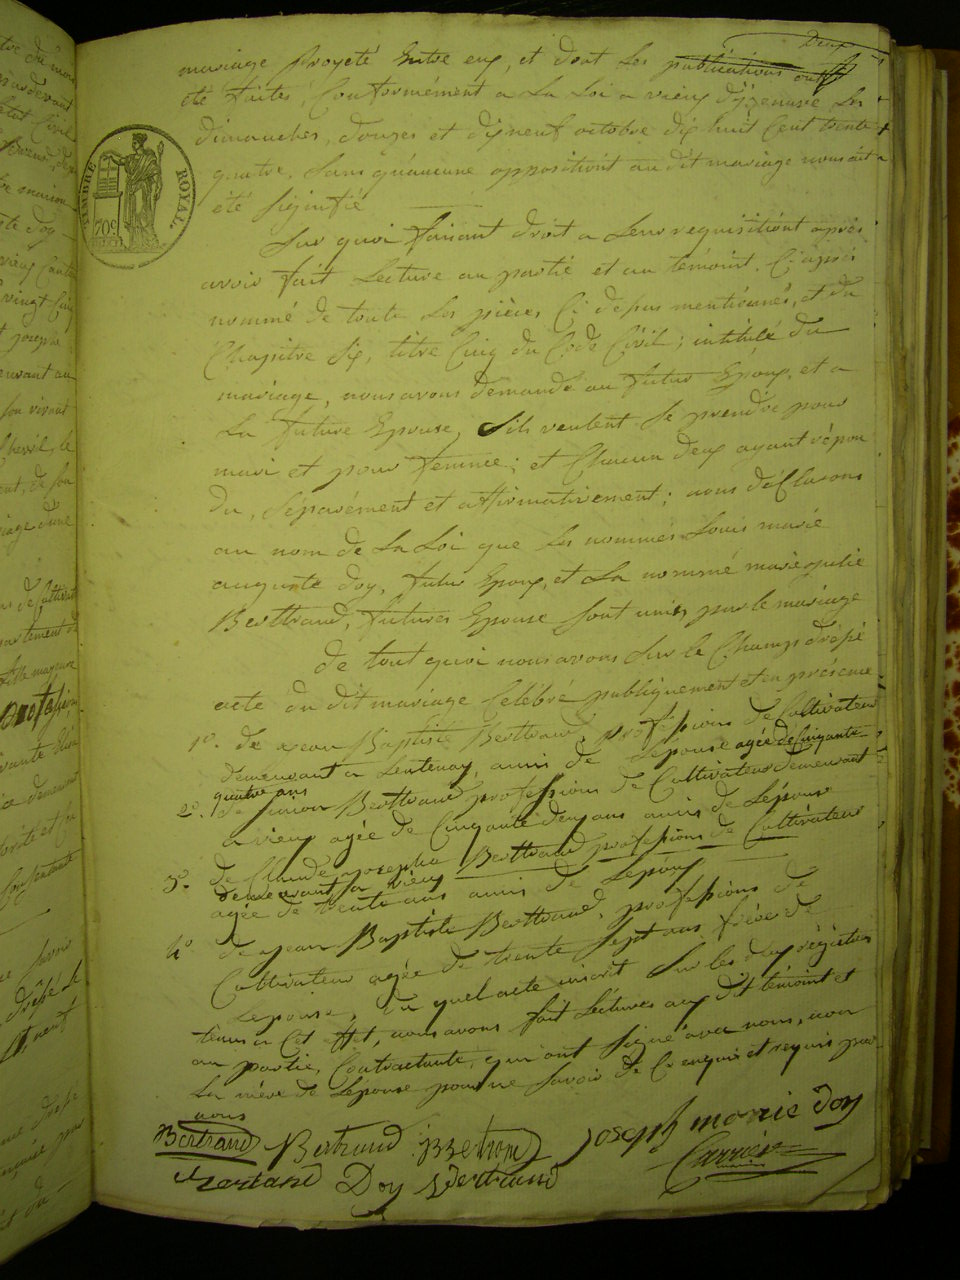 Deux
mariage projeté Entre eux, et dont Les publications ont
été faites, Conformément a La Loi a vieux d'yzenave Les
dimanches, douzes et dixneuf octobre dix huit Cent trente
quatre, Sans qu'aucune oppositiont au dit mariage nous ait
été Signifié
Sur quoi faisant droit a Leur requisitiont après
avoir fait Lecture au partié et au témoint Ci après
nommé de toute Les pièces Ci depus mentionnés, et du
Chapitre Six, titre Cinq du Code Civil; intitulé du
mariage, nous avons demandé au futur Epoux, et a
La future Epouse, S'ils veulent Se prendre pour
mari et pour femme; et Chacun deux ayant répon
du, Séparément et affirmativement; nous déCLarons
au nom de La Loi que Les nommés Louis marie
auguste doy, futur Epoux, et La nommé marie julie
Berttrand, futures Epouse Sont unis, par le mariage
de tout quoi nous avons Sur le Champs drépé
acte du dit mariage Célébré publiquement et en présence
1º. de jean Baptiste Berttrand, profession de Cultivateur
demeurant a Lentenay, amis de Lépouse agée de Cinquante
quatre ans
2º. de Berttrand profession de Cultivateur demeurant
a vieux agée de Cinquante deux ans amis de Lépouse
3º. de Claude josephe Berttrand profession de Cultivateur
demeurant a vieux
agée de trente ans amis de Lépoux
4º de jean Baptiste Berttrand, profession de
Cultivateur agée de trente Sept ans frère de
Lepouse, du quel acte inscrit Sur les deux régistres
tenus a Cet effet, nous avons fait Lectures aux dit témoint et
au partie, Contractante, qui ont Signé avec nous, non
La mère de Lépouse pour ne Savoir de Ce enquis et requis par
nous
Bertrand Bertrand Joseph marie Doy
Doy Bertrand Carrier
TIMBRE ROYAL.
70c